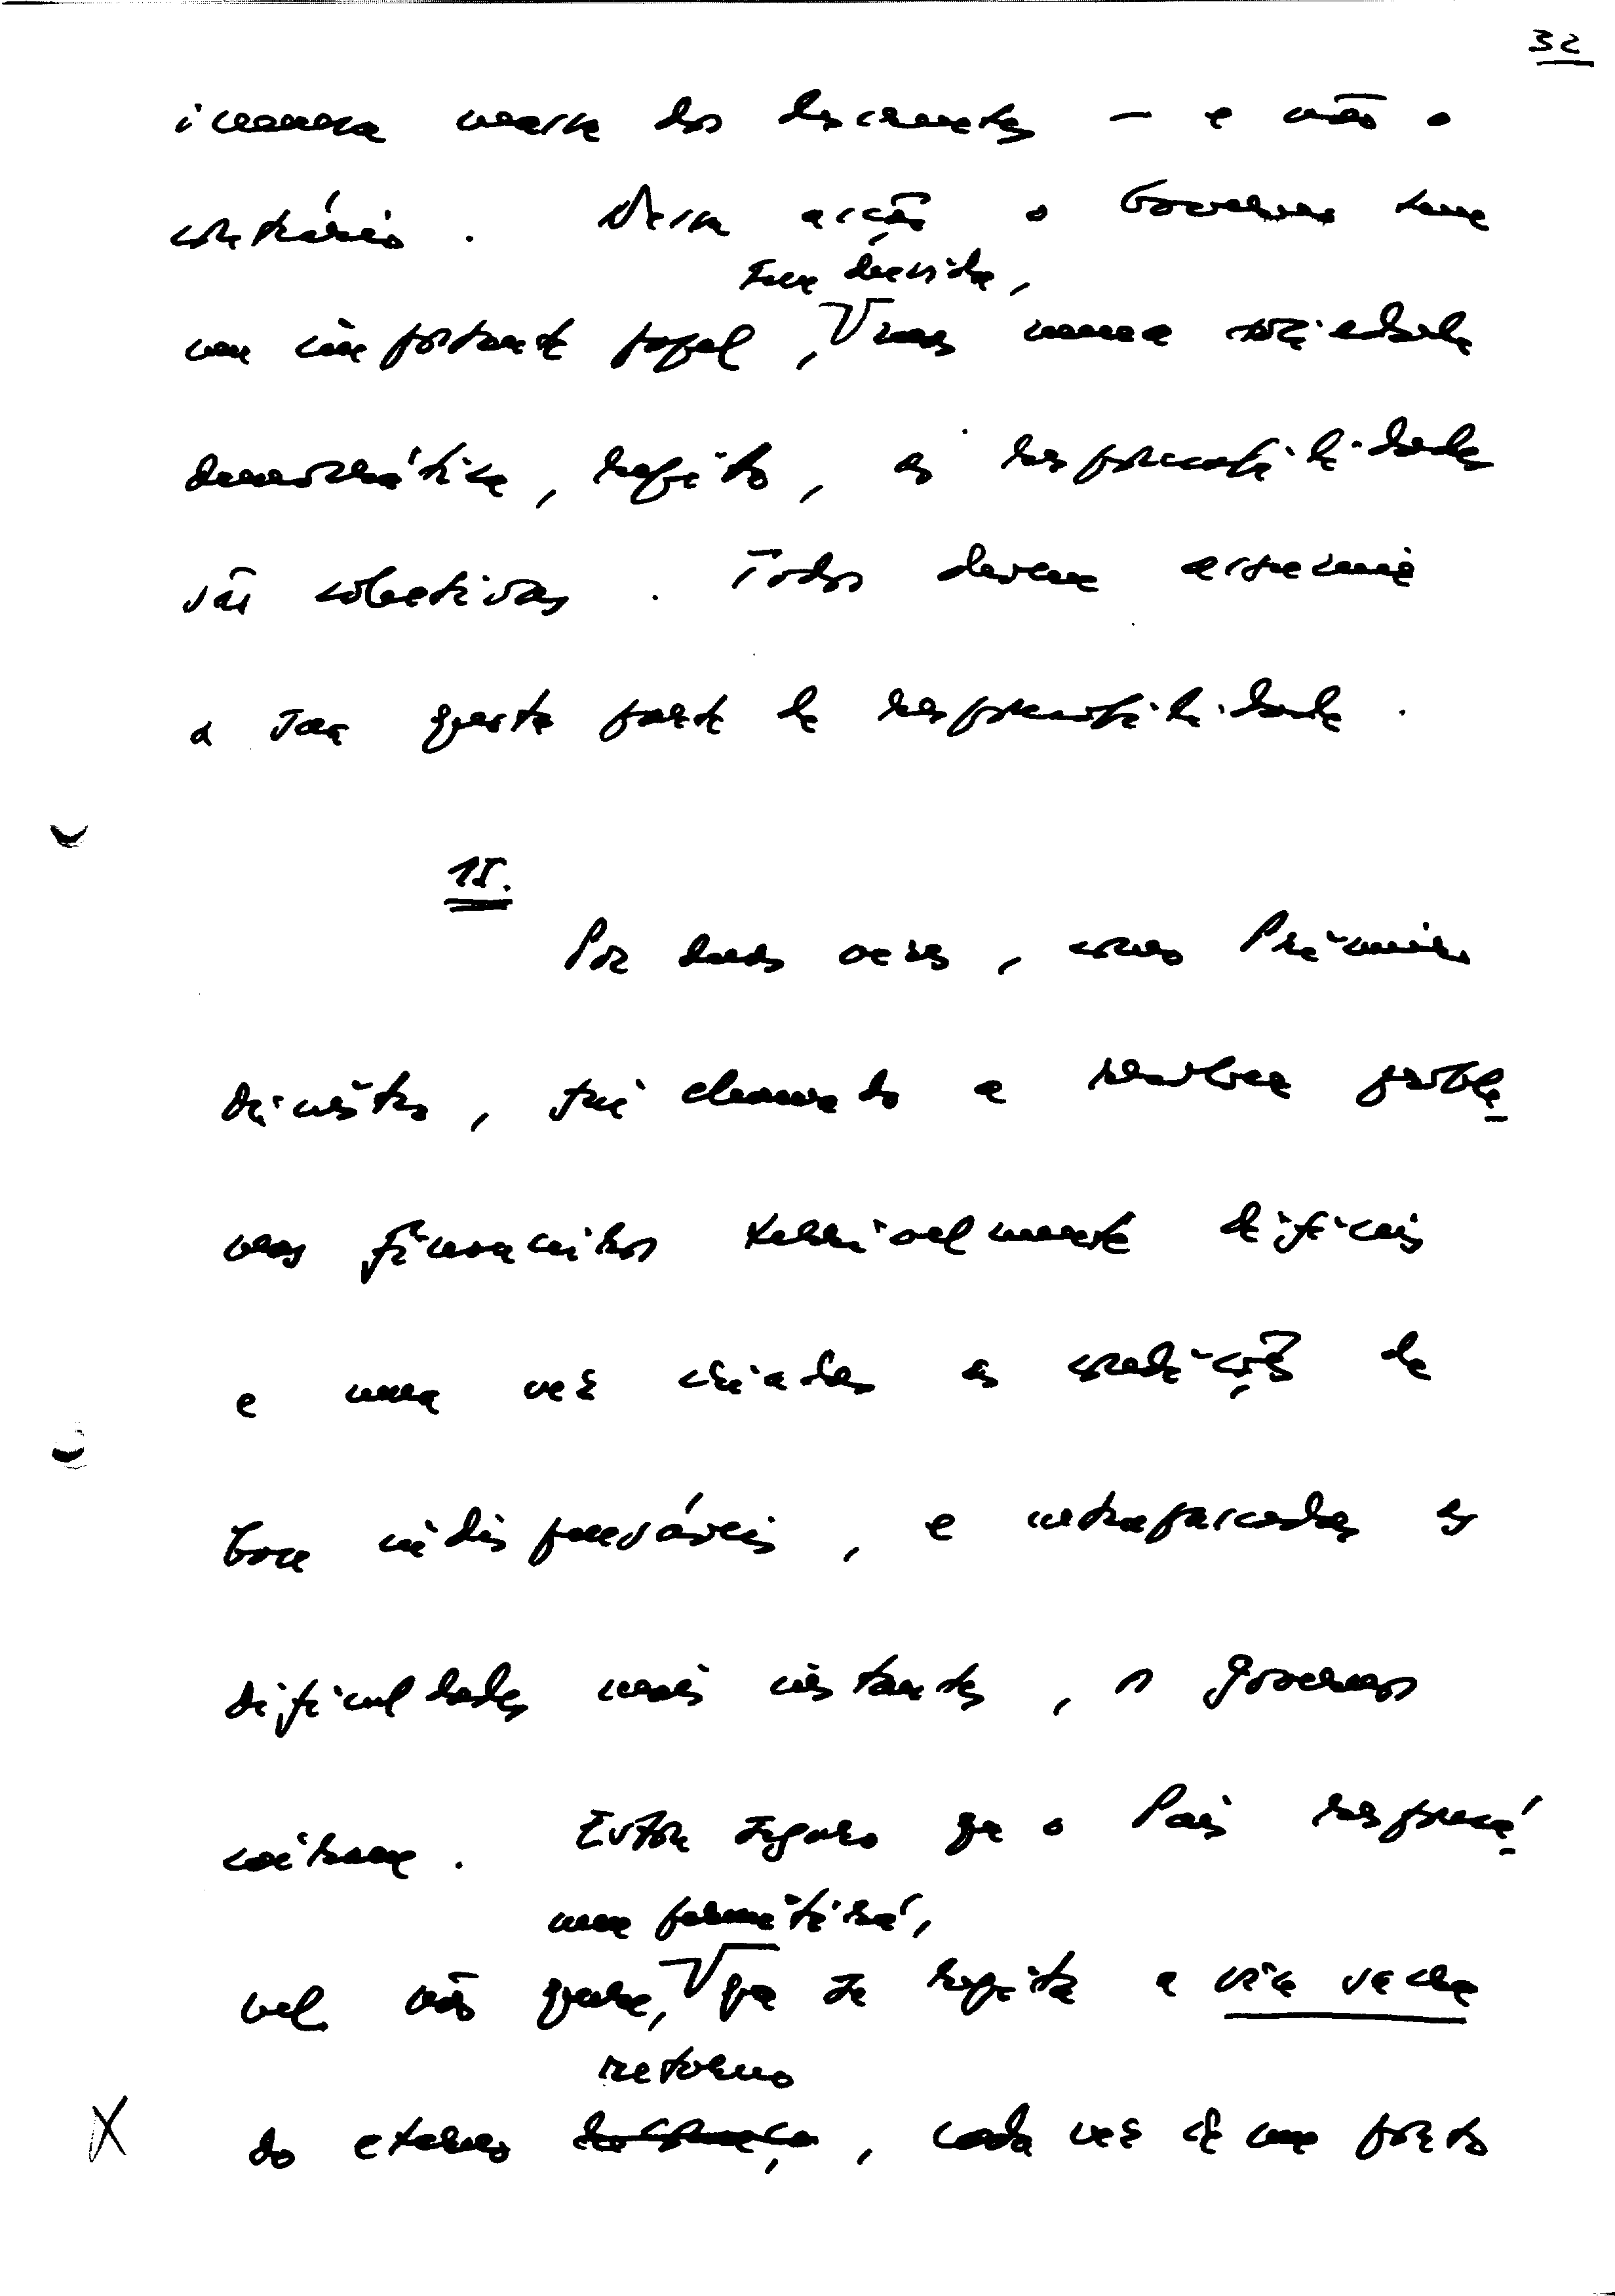 32
imensa massa dos descrentes — e não o
contrário. Nessa acção o Governo tem
sem dúvida,
um importante papel, mas numa sociedade
democrática, repito, as responsabilidades
são colectivas. Todos devem assumir
a sua quota parte de responsabilidade.
15.
Por duas vezes, como Primeiro
Ministro, fui chamado a resolver proble
mas financeiros terrivelmente difíceis
e uma vez criadas as condições de
base indispensáveis, e ultrapassadas as
dificuldades mais instantes, o governo
caiu. Estou seguro que o País responsá
nem permitirá,
vel não quer, que se repita a via sacra
retorno
do eterno, cada vez de um ponto